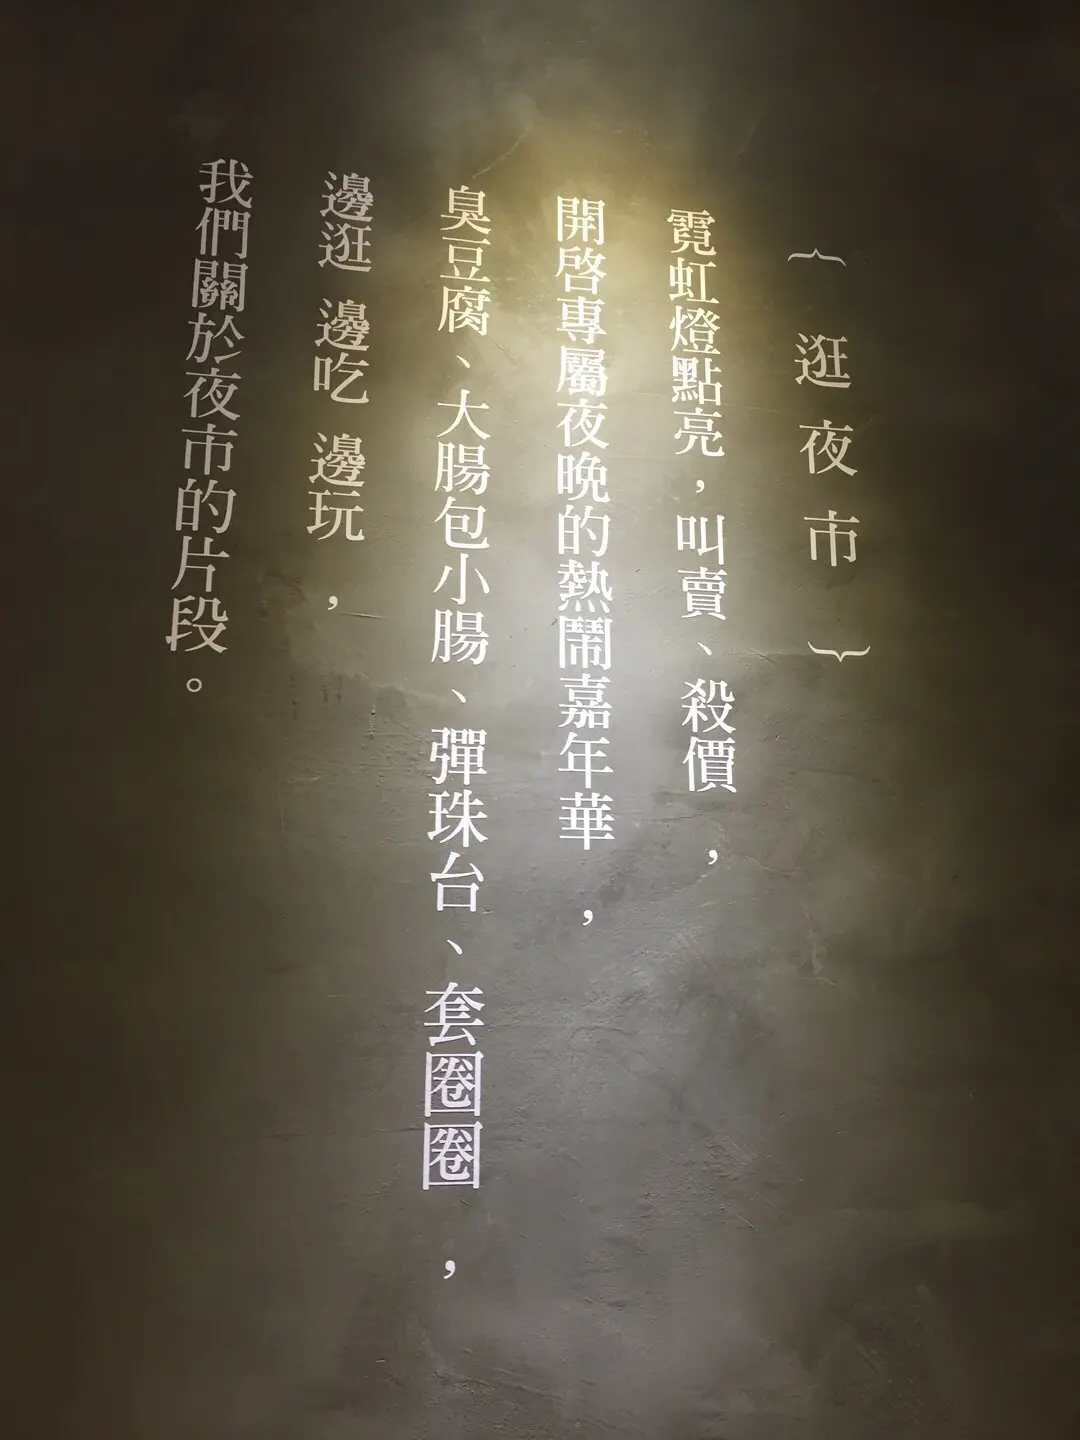 ｛逛夜市｝
霓虹燈點亮，叫賣、殺價，
開啓專屬夜晚的熱鬧嘉年華，
臭豆腐、大腸包小腸、彈珠台、套圈圈，
邊逛 邊吃 邊玩，
我們關於夜市的片段。